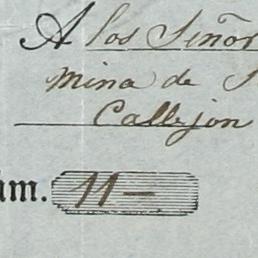 A los Señor
Mina de
Callejon
úm. 11—